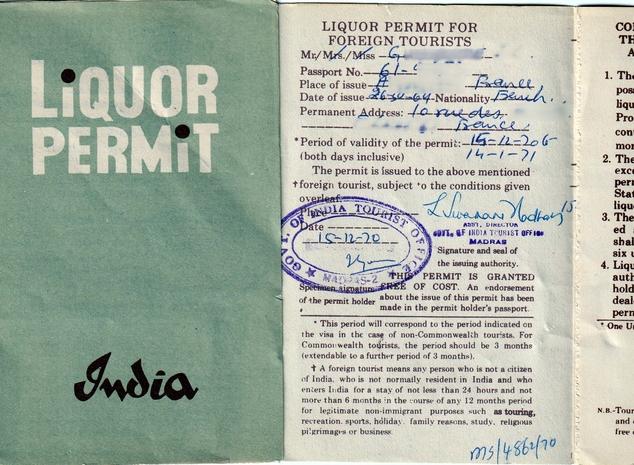 LiQUOR
PERMiT
India
LIQUOR PERMIT FOR
FOREIGN TOURISTS
Mr/Mrs./Miss G
Passport No. 61-
Place of issue France
Date of issue Nationality French.
Permanent Address: 10 rue des
France.
*Period of validity of the permit: 15-12-
(both days inclusive) 14-1-71
The permit is issued to the above mentioned
†foreign tourist, subject to the conditions given
overleaf.
Date
15-12-70
GOVT. OF INDIA TOURIST OFFICE
MADRAS-2
ASST. DIRECTOR
GOVT. OF INDIA TOURIST OFFICE
MADRAS
Signature and seal of
the issuing authority.
Specimen signature
of the permit holder
THIS PERMIT IS GRANTED
FREE OF COST. An endorsement
about the issue of this permit has been
made in the permit holder's passport.
* This period will correspond to the period indicated on
the visa in the case of non-Commonwealth tourists. For
Commonwealth tourists, the period should be 3 months
(extendable to a further period of 3 months).
† A foreign tourist means any person who is not a citizen
of India, who is not normally resident in India and who
enters India for a stay of not less than 24 hours and not
more than 6 months in the course of any 12 months period
for legitimate non-immigrant purposes such as touring,
recreation, sports, holiday, family reasons, study, religious
pilgrimages or business.
MS/4862/70
CO
TH
A
1. The
pos
liqu
Pro
con
mor
2. The
exce
perm
Stat
liqu
3. The
ed
shal
six u
4. Liqu
auth
hold
deale
perm
* One U
N.B.-Tour
and
free